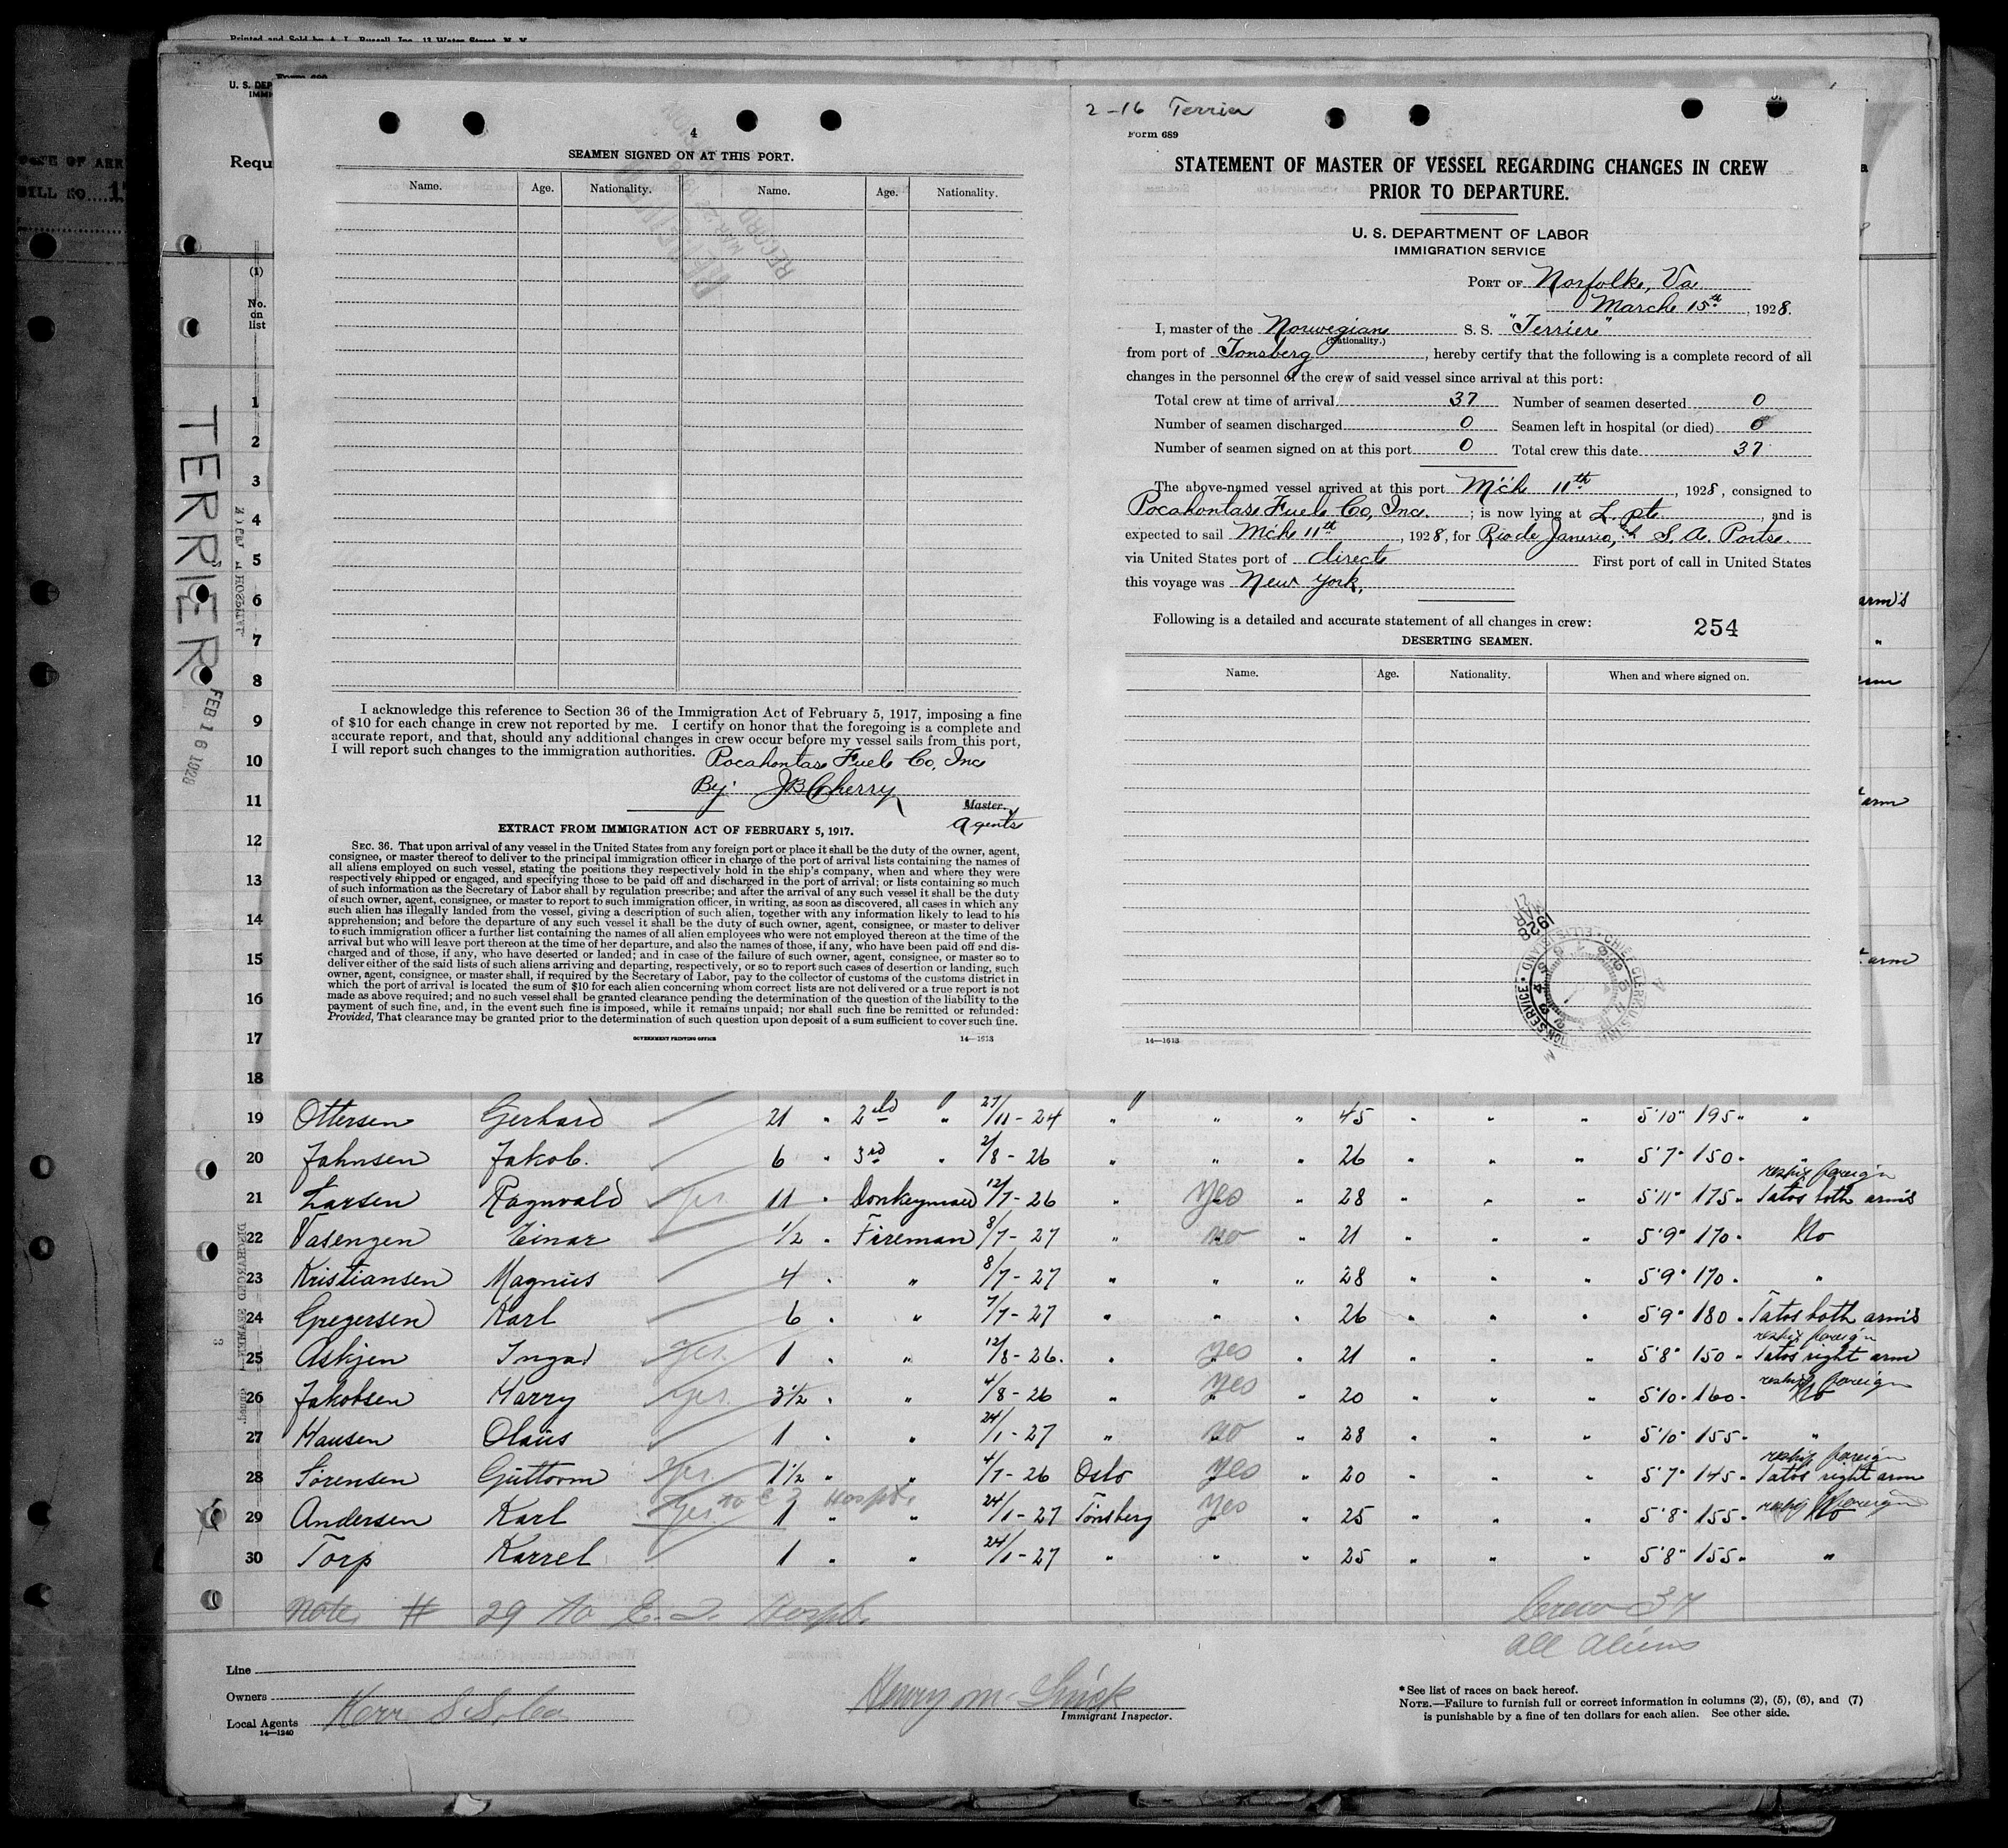 Printed and Sold by A. L. Russell, Inc., 13 Water Street, N. Y.
Form 689
U. S. DEP
IMMI
Requ
BILL NO.
(1)
No. on list
TERRIER
FEB 16 1928
4
SEAMEN SIGNED ON AT THIS PORT.
Name. Age. Nationality. Name. Age. Nationality.
RECORD
I acknowledge this reference to Section 36 of the Immigration Act of February 5, 1917, imposing a fine
of $10 for each change in crew not reported by me. I certify on honor that the foregoing is a complete and
accurate report, and that, should any additional changes in crew occur before my vessel sails from this port,
I will report such changes to the immigration authorities.
Pocahontas Fuel Co, Inc
By: JB Cherry
Master.
Agents
EXTRACT FROM IMMIGRATION ACT OF FEBRUARY 5, 1917.
SEC. 36. That upon arrival of any vessel in the United States from any foreign port or place it shall be the duty of the owner, agent,
consignee, or master thereof to deliver to the principal immigration officer in charge of the port of arrival lists containing the names of
all aliens employed on such vessel, stating the positions they respectively hold in the ship's company, when and where they were
respectively shipped or engaged, and specifying those to be paid off and discharged in the port of arrival; or lists containing so much
of such information as the Secretary of Labor shall by regulation prescribe; and after the arrival of any such vessel it shall be the duty
of such owner, agent, consignee, or master to report to such immigration officer, in writing, as soon as discovered, all cases in which any
such alien has illegally landed from the vessel, giving a description of such alien, together with any information likely to lead to his
apprehension; and before the departure of any such vessel it shall be the duty of such owner, agent, consignee, or master to deliver
to such immigration officer a further list containing the names of all alien employees who were not employed thereon at the time of the
arrival but who will leave port thereon at the time of her departure, and also the names of those, if any, who have been paid off and dis-
charged and of those, if any, who have deserted or landed; and in case of the failure of such owner, agent, consignee, or master so to
deliver either of the said lists of such aliens arriving and departing, respectively, or so to report such cases of desertion or landing, such
owner, agent, consignee, or master shall, if required by the Secretary of Labor, pay to the collector of customs of the customs district in
which the port of arrival is located the sum of $10 for each alien concerning whom correct lists are not delivered or a true report is not
made as above required; and no such vessel shall be granted clearance pending the determination of the question of the liability to the
payment of such fine, and, in the event such fine is imposed, while it remains unpaid; nor shall such fine be remitted or refunded:
Provided, That clearance may be granted prior to the determination of such question upon deposit of a sum sufficient to cover such fine.
GOVERNMENT PRINTING OFFICE 14—1613
2-16 Terrier
Form 689
STATEMENT OF MASTER OF VESSEL REGARDING CHANGES IN CREW
PRIOR TO DEPARTURE.
U. S. DEPARTMENT OF LABOR
IMMIGRATION SERVICE
PORT OF Norfolk, Va
March 15th, 1928.
I, master of the Norwegian S. S. "Terrier"
(Nationality.)
from port of Tonsberg, hereby certify that the following is a complete record of all
changes in the personnel of the crew of said vessel since arrival at this port:
Total crew at time of arrival 37 Number of seamen deserted 0
Number of seamen discharged 0 Seamen left in hospital (or died) 0
Number of seamen signed on at this port 0 Total crew this date 37
The above-named vessel arrived at this port Mch 11th, 1928, consigned to
Pocahontas Fuel Co, Inc.; is now lying at L. pts, and is
expected to sail Mch 11th, 1928, for Rio de Janerio, S. A. Ports.
via United States port of direct First port of call in United States
this voyage was New York,
Following is a detailed and accurate statement of all changes in crew: 254
DESERTING SEAMEN.
Name. Age. Nationality. When and where signed on.
1928
14—1613
1
2
3
4
5
6
7
8
9
10
11
12
13
14
15
16
17
18
arm's
"
arm
arm
arm
19 Ottersen Gerhard 21 " 2nd " 27/11-24 " " " 45 " " " 5'10" 195 " "
20 Johnsen Jakob. 6 " 3rd " 2/8-26 " " " 26 " " " 5'7" 150 " "
reship foreign
21 Larsen Ragnvald yes 11 " Donkeyman 12/7-26 " yes " 28 " " " 5'11" 175 " Tatos both arms
22 Vasengen Einar 1/2 " Fireman 8/7-27 " no " 21 " " " 5'9" 170 " No
23 Kristiansen Magnus 4 " " 8/7-27 " " " 28 " " " 5'9" 170 " "
24 Gregersen Karl 6 " " 7/7-27 " " " 26 " " " 5'9" 180 " Tatos both arms
reship foreign
25 Askjen Ingar yes 1 " " 12/8-26. " yes " 21 " " " 5'8" 150 " Tatos right arm
reship foreign
26 Jakobsen Harry yes 3 1/2 " " 4/8-26 " yes " 20 " " " 5'10" 160 " No
27 Hansen Olaus 1 " " 24/1-27 " no " 28 " " " 5'10" 155 " "
reship foreign
28 Sörensen Guttorm yes 1 1/2 " " 4/7-26 Oslo yes " 20 " " " 5'7" 145 " Tatos right arm
to E I Hospt. reship foreign
29 Andersen Karl yes 1 " " 24/1-27 Tönsberg yes " 25 " " " 5'8" 155 " No
30 Torp Karrel 1 " " 24/1-27 " " " 25 " " " 5'8" 155 " "
Note # 29 to E. I. Hospt. Crew 37
all aliens
Line
Owners
Local Agents Kerr S S Co
14—1240
Immigrant Inspector.
* See list of races on back hereof.
NOTE.—Failure to furnish full or correct information in columns (2), (5), (6), and (7)
is punishable by a fine of ten dollars for each alien. See other side.